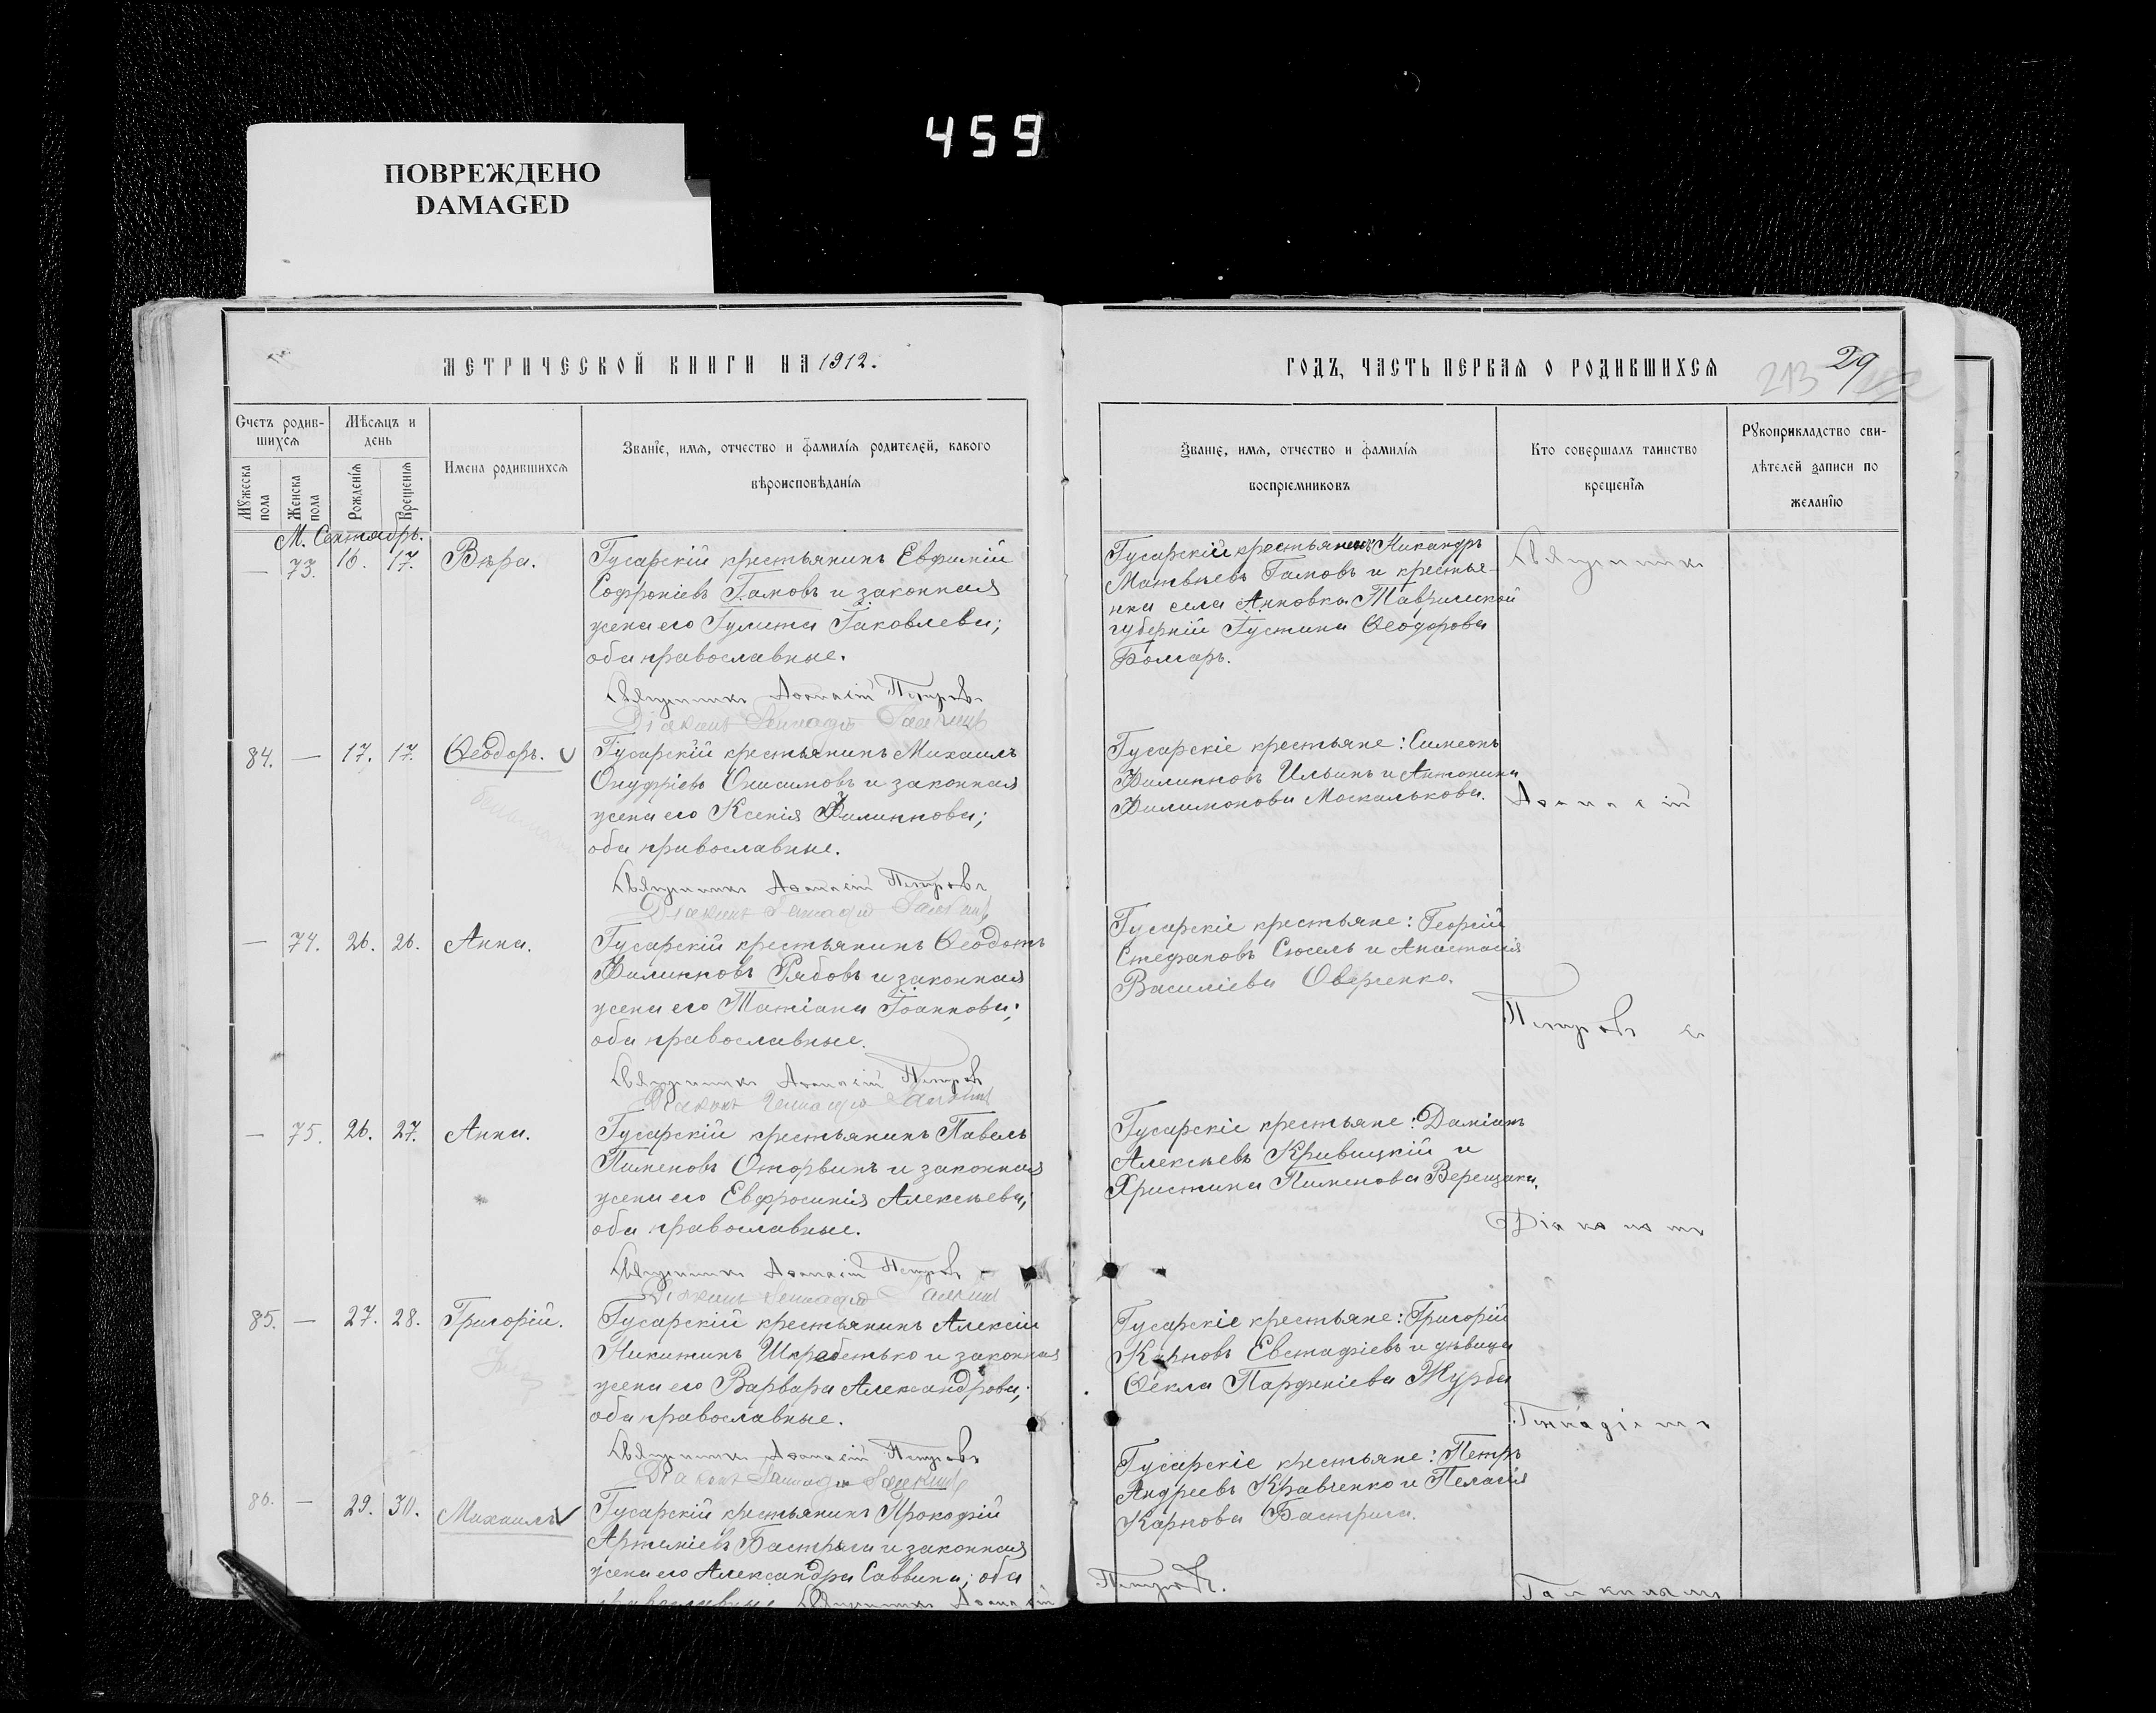 459
ПОВРЕЖДЕНО
DAMAGED
МЕТРИЧЕСКОЙ КНИГИ НА 1912.
Счетъ родив-
шихся
Мѣсяцъ и
день
Имена родившихся
Званіе, имя, отчество и фамилія родителей, какого
вѣроисповѣданія
Мужеска
пола
Женска
пола
Рожденія
Крещенія
М. Сентябрь.
— 73. 16. 17. Вѣра.
Гусарскій крестьянинъ Евфимій
Софроніевъ Гамовъ и законная
жена его Іулита Іаковлева;
оба православные.
Священникъ Афанасій Петровъ
Діаконъ Геннадій Галкинъ
84. — 17. 17. Ѳеодоръ.
Гусарскій крестьянинъ Михаилъ
Онуфріевъ Онисимовъ и законная
жена его Ксенія Филиппова;
оба православные.
Священникъ Афанасій Петровъ
Діаконъ Геннадій Галкинъ
— 74. 26. 26. Анна.
Гусарскій крестьянинъ Ѳеодотъ
Филипповъ Рябовъ и законная
жена его Татіана Іоаннова;
оба православные.
Священникъ Афанасій Петровъ
Діаконъ Геннадій Галкинъ
— 75. 26. 27. Анна.
Гусарскій крестьянинъ Павелъ
Пименовъ Оторвинъ и законная
жена его Евфросинія Алексѣева;
оба православные.
Священникъ Афанасій Петровъ
Діаконъ Геннадій Галкинъ
85. — 27. 28. Григорій.
Гусарскій крестьянинъ Алексій
Никитинъ Шкрабетько и законная
жена его Варвара Александрова;
оба православные.
Священникъ Афанасій Петровъ
Діаконъ Геннадій Галкинъ
86. — 29. 30. Михаилъ
Гусарскій крестьянинъ Прокофій
Артеміевъ Бастрыга и законная
жена его Александра Саввина; оба
православные. Священникъ Афанасій
ГОДЪ, ЧАСТЬ ПЕРВАЯ О РОДИВШИХСЯ
213 29
Званіе, имя, отчество и фамилія
воспріемниковъ
Кто совершалъ таинство
крещенія
Рукоприкладство сви-
дѣтелей записи по
желанію
Гусарскій крестьянинъ Никандръ
Матвѣевъ Гамовъ и крестья-
нка села Анновка Таврической
губерній Іустина Ѳеодорова
Гусарскіе крестьяне: Симеонъ
Филипповъ Ильинъ и Антонина
Филимонова Москалькова.
Гусарскіе крестьяне: Георгій
Стефановъ Сюсель и Анастасія
Василіева Оверченко.
Гусарскіе крестьяне: Даміанъ
Алексѣевъ Кривицкій и
Христина Пименова Верещака.
Гусарскіе крестьяне: Григорій
Карповъ Евстафіевъ и дѣвица
Ѳекла Парфеніева Журба
Гусарскіе крестьяне: Петръ
Андреевъ Кравченко и Пелагія
Карпова Бастрига.
Петровъ.
Священникъ
Афанасій
Петровъ съ
Діакономъ
Геннадіемъ
Галкинымъ